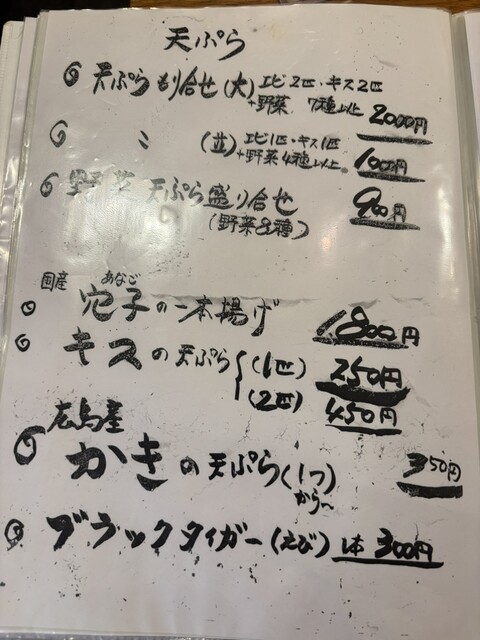 天ぷら
天ぷらもり合せ(大) エビ2匹・キス2匹
+野菜 7種以上 2000円
〃 (並) エビ1匹・キス1匹
+野菜4種以上 1000円
野菜天ぷら盛り合せ 900円
(野菜8種)
国産 あなご
穴子の一本揚げ 1800円
キスの天ぷら (1匹) 250円
(2匹) 450円
広島産
かきの天ぷら(1つ) 350円
から〜
ブラックタイガー(えび) 1本 300円